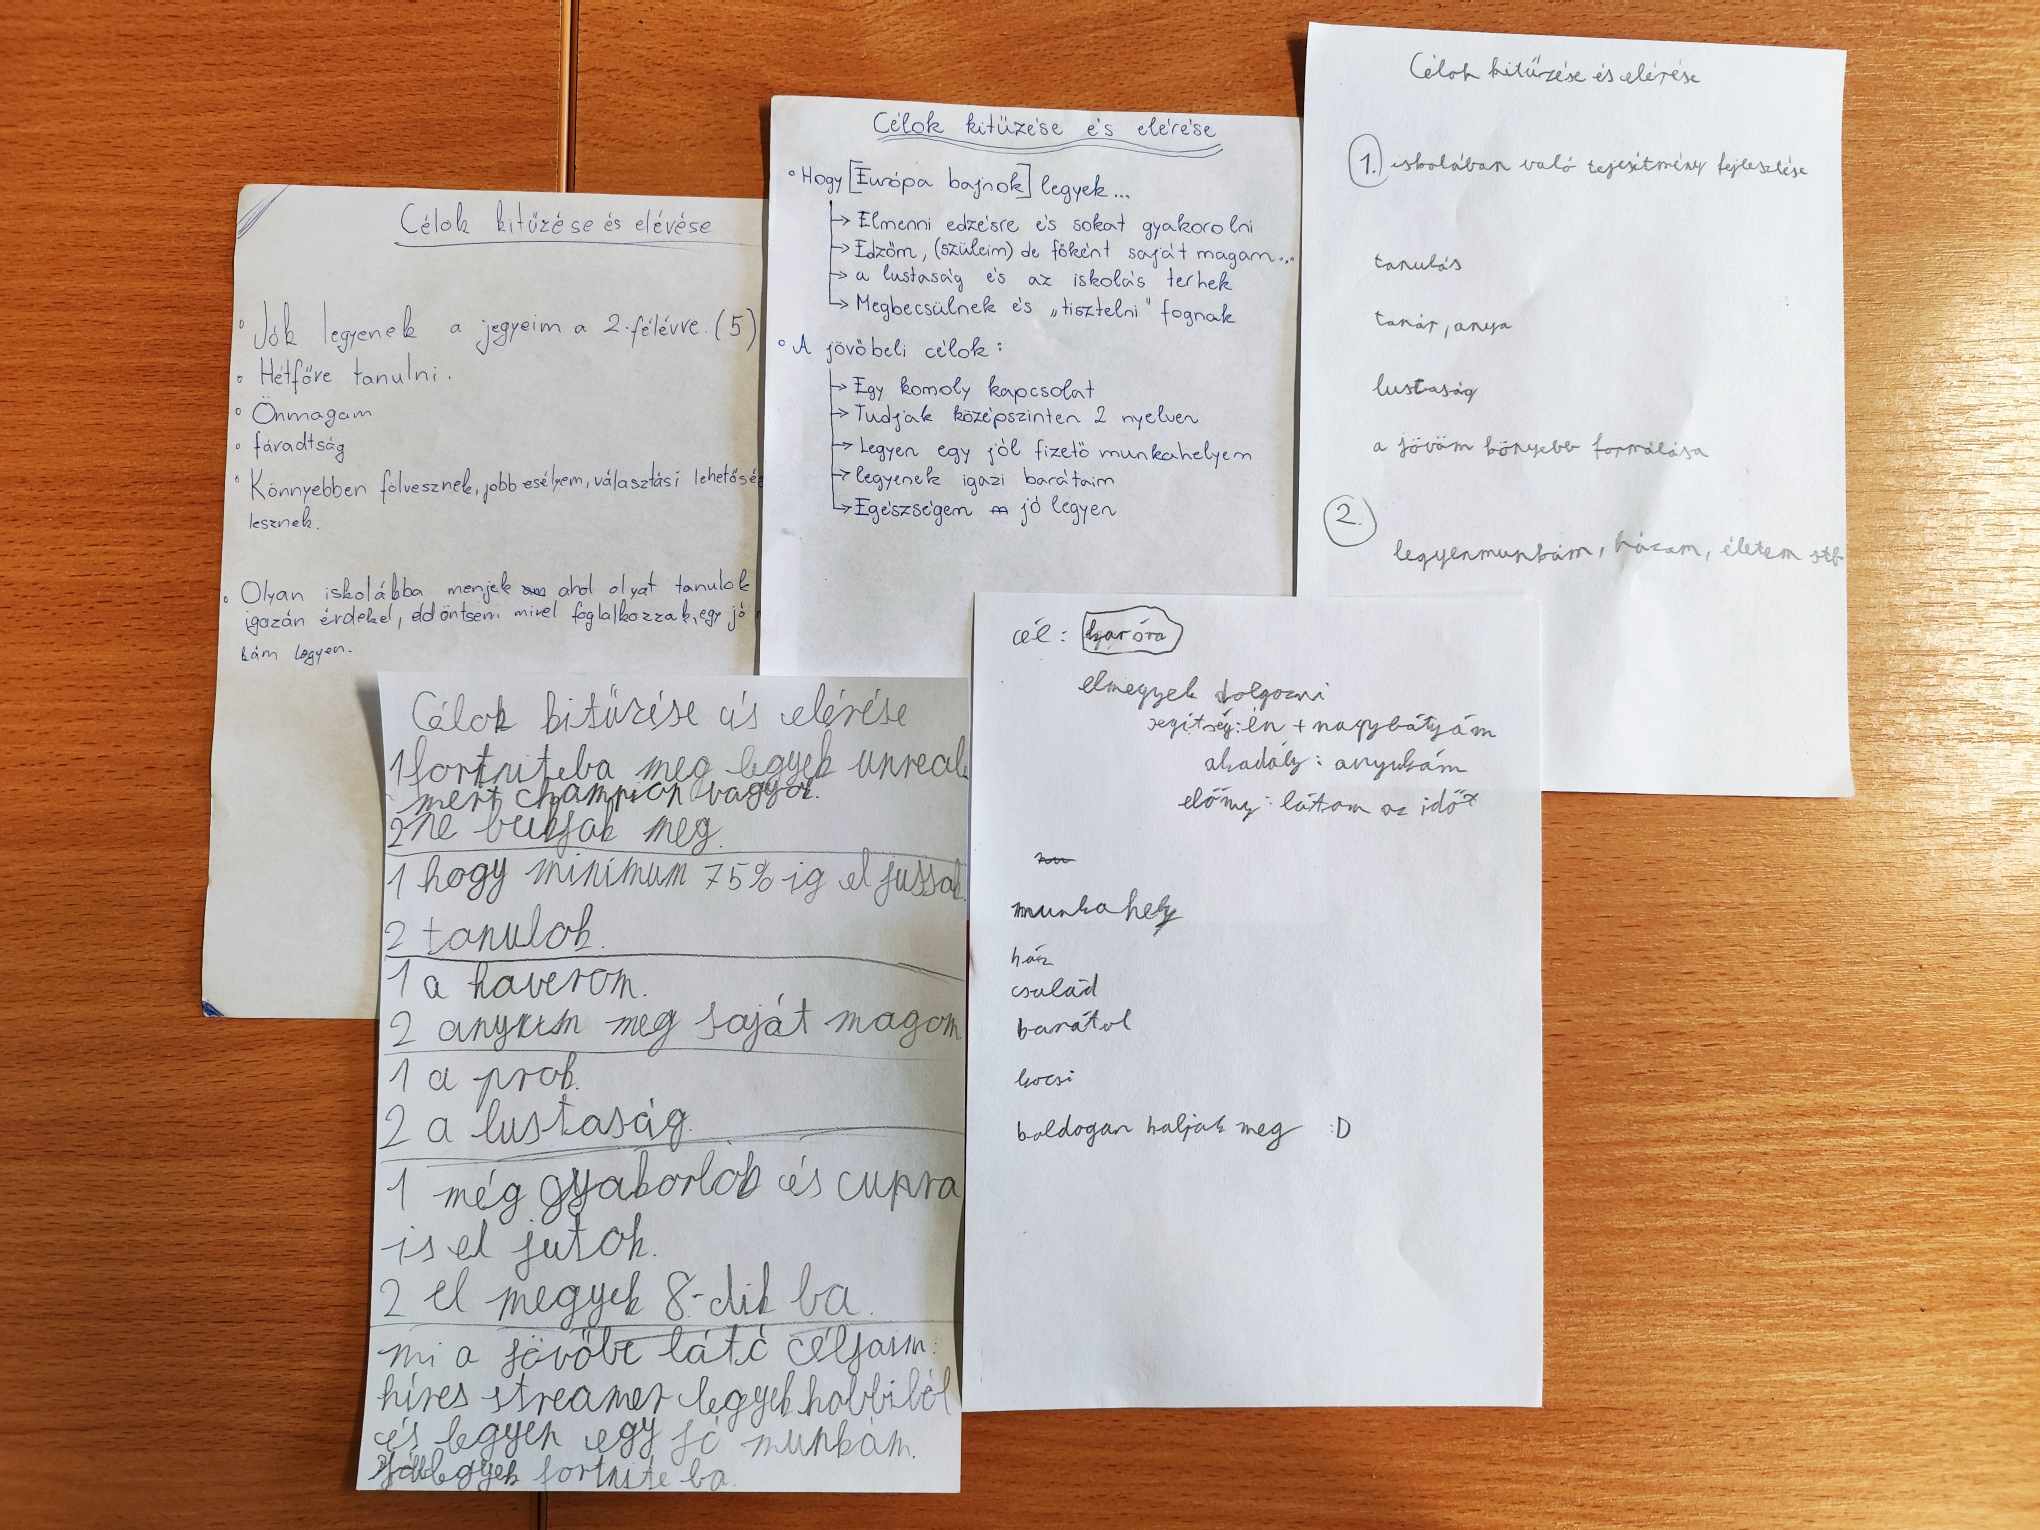 Célok kitűzése és elérése
Jók legyenek a jegyeim a 2. félévre. (5)
Hétfőre tanulni.
Önmagam
fáradtság
Könnyebben fölvesznek, jobb esélyem, választási lehetősé
lesznek.
Olyan iskolákba menjek ahol olyat tanulok
igazán érdekel, eldöntsem mivel foglalkozzak, egy jó
kám legyen.
Célok kitűzése és elérése
Hogy [Európa bajnok] legyek...
→ Elmenni edzésre és sokat gyakorolni
→ Edzőm, (szüleim) de főként saját magam...
→ a lustaság és az iskolás terhek
→ Megbecsülnek és „tisztelni" fognak
A jövőbeli célok:
→ Egy komoly kapcsolat
→ Tudjak középszinten 2 nyelven
→ Legyen egy jól fizető munkahelyem
→ legyenek igazi barátaim
→ Egészségem jó legyen
Célok kitűzése és elérése
1. iskolában való tejesítmény fejlesztése
tanulás
tanár, anya
lustaság
a jövőm könyebb formálása
2.
legyenmunkám, házam, életem stb
Célok kitűzése és elérése
1 fortniteba meg legyek unreal
mert champion vagyok.
2 ne bukjak meg.
1 hogy minimum 75%-ig el jussak
2 tanulok.
1 a haverom.
2 anyum meg saját magom
1 a prok.
2 a lustaság.
1 még gyakorlok és cupra
is el jutok.
2 el megyek 8.-dik ba.
mi a jövőbe látó céljaim:
híres streamer legyek hobbiból
és legyen egy jó munkám.
legyek fortnite ba.
cél: karóra
elmegyek dolgozni
segítség: én + nagybátyám
akadály: anyukám
előny: látom az időt
munkahely
ház
család
barátok
kocsi
boldogan haljak meg :D